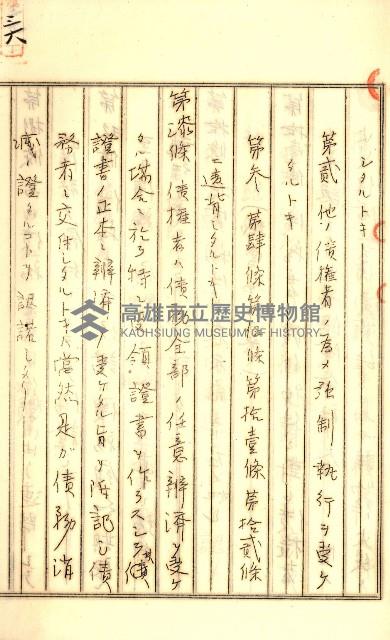 シタルトキ
第貳 他ノ債權者ノ爲メ強制執行ヲ受ケ
タルトキ
第參 第肆條第條第拾壹條第拾貳條
ニ違背シタルトキ
第漆條 債權者ハ債務全部ノ任意辨濟ヲ受ケ
タル場合ニ於テ特ニ領證書ヲ作ラスシテ債
證書ノ正本ニ辨濟ヲ受ケタル旨ヲ附記シ債
務者ニ交付シタルトキハ當然是ガ債務消
滅ノ證タルコトヲ認諾シタリ
三六
高雄市立歷史博物館
KAOHSIUNG MUSEUM OF HISTORY